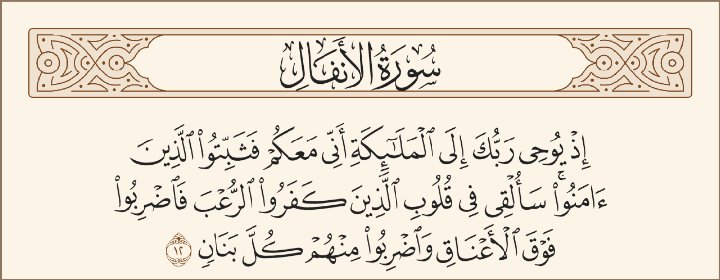 سُورَةُ الأَنفَالِ
إِذْ يُوحِى رَبُّكَ إِلَى ٱلْمَلَٰٓئِكَةِ أَنِّى مَعَكُمْ فَثَبِّتُوا۟ ٱلَّذِينَ
ءَامَنُوا۟ۚ سَأُلْقِى فِى قُلُوبِ ٱلَّذِينَ كَفَرُوا۟ ٱلرُّعْبَ فَٱضْرِبُوا۟
فَوْقَ ٱلْأَعْنَاقِ وَٱضْرِبُوا۟ مِنْهُمْ كُلَّ بَنَانٍ ١٢